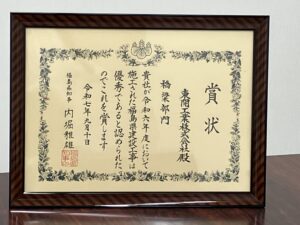 賞状
橋梁部門
東開工業株式会社殿
貴社が令和六年度において
施工された福島県建設工事は
優秀であると認められた
のでこれを賞します
令和七年九月十日
福島県知事 内堀雅雄